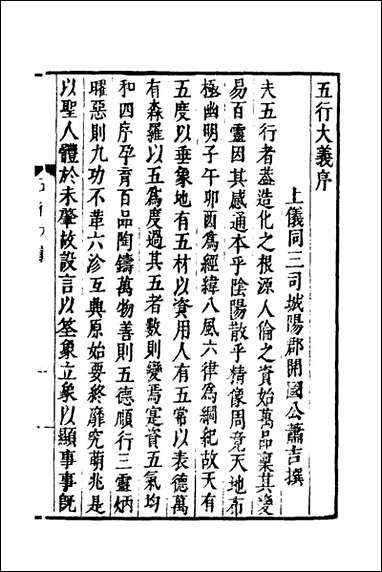 五行大義序
上儀同三司城陽郡開國公蕭吉撰
夫五行者葢造化之根源人倫之資始萬品稟其變
易百靈因其感通本乎陰陽散乎精像周竟天地布
極幽明子午夘酉爲經緯八風六律爲綱紀故天有
五度以垂象地有五材以資用人有五常以表德萬
有森羅以五爲度過其五者數則變焉寔資五氣均
和四序孕育百品陶鑄萬物善則五德順行三靈炳
曜惡則九功不革六沴互興原始要終靡究萌兆是
以聖人體於未肇故設言以筌象立象以顯事事旣
五行大義